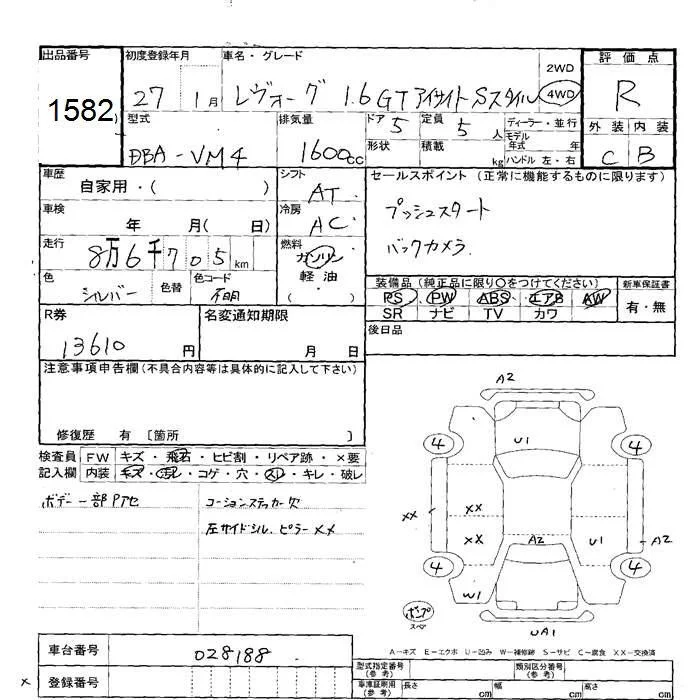 出品番号
1582
初度登録年月
27 1月
車名・グレード
レヴォーグ 1.6GT アイサイト Sスタイル
2WD
4WD
評価点
R
型式
DBA-VM4
排気量
1600cc
ドア 5
定員 5人
ディーラー・並行
モデル
年式 年
形状
積載 kg
ハンドル 左・右
外装 内装
C B
車歴
自家用・( )
シフト
AT
セールスポイント (正常に機能するものに限ります)
プッシュスタート
バックカメラ
車検
年 月( 日)
冷房
AC
走行
8万6千705km
燃料
ガソリン
軽油
( )
色
シルバー
色替
色コード
不明
装備品(純正品に限り○をつけてください)
PS PW ABS エアB AW
SR ナビ TV カワ
新車保証書
有・無
R券
13610円
名変通知期限
月 日
後日品
注意事項申告欄(不具合内容等は具体的に記入して下さい)
修復歴 有 [箇所 ]
検査員
記入欄
FW キズ・飛石・ヒビ割・リペア跡・×要
内装 キズ・汚レ・コゲ・穴・スレ・キレ・破レ
ボデー一部Pアセ
コーションステッカー欠
左サイドシル、ピラーXX
A2
U1
4
4
XX
XX
XX
A2
U1
A2
4
4
W1
UA1
ポンプ
スペア
A-キズ E-エクボ U-凹み W-補修跡 S-サビ C-腐食 XX-交換済
車台番号
028188
登録番号
x
型式指定番号
(参考)
類別区分番号
(参考)
車庫証明用
(参考)
長さ cm
幅 cm
高さ cm